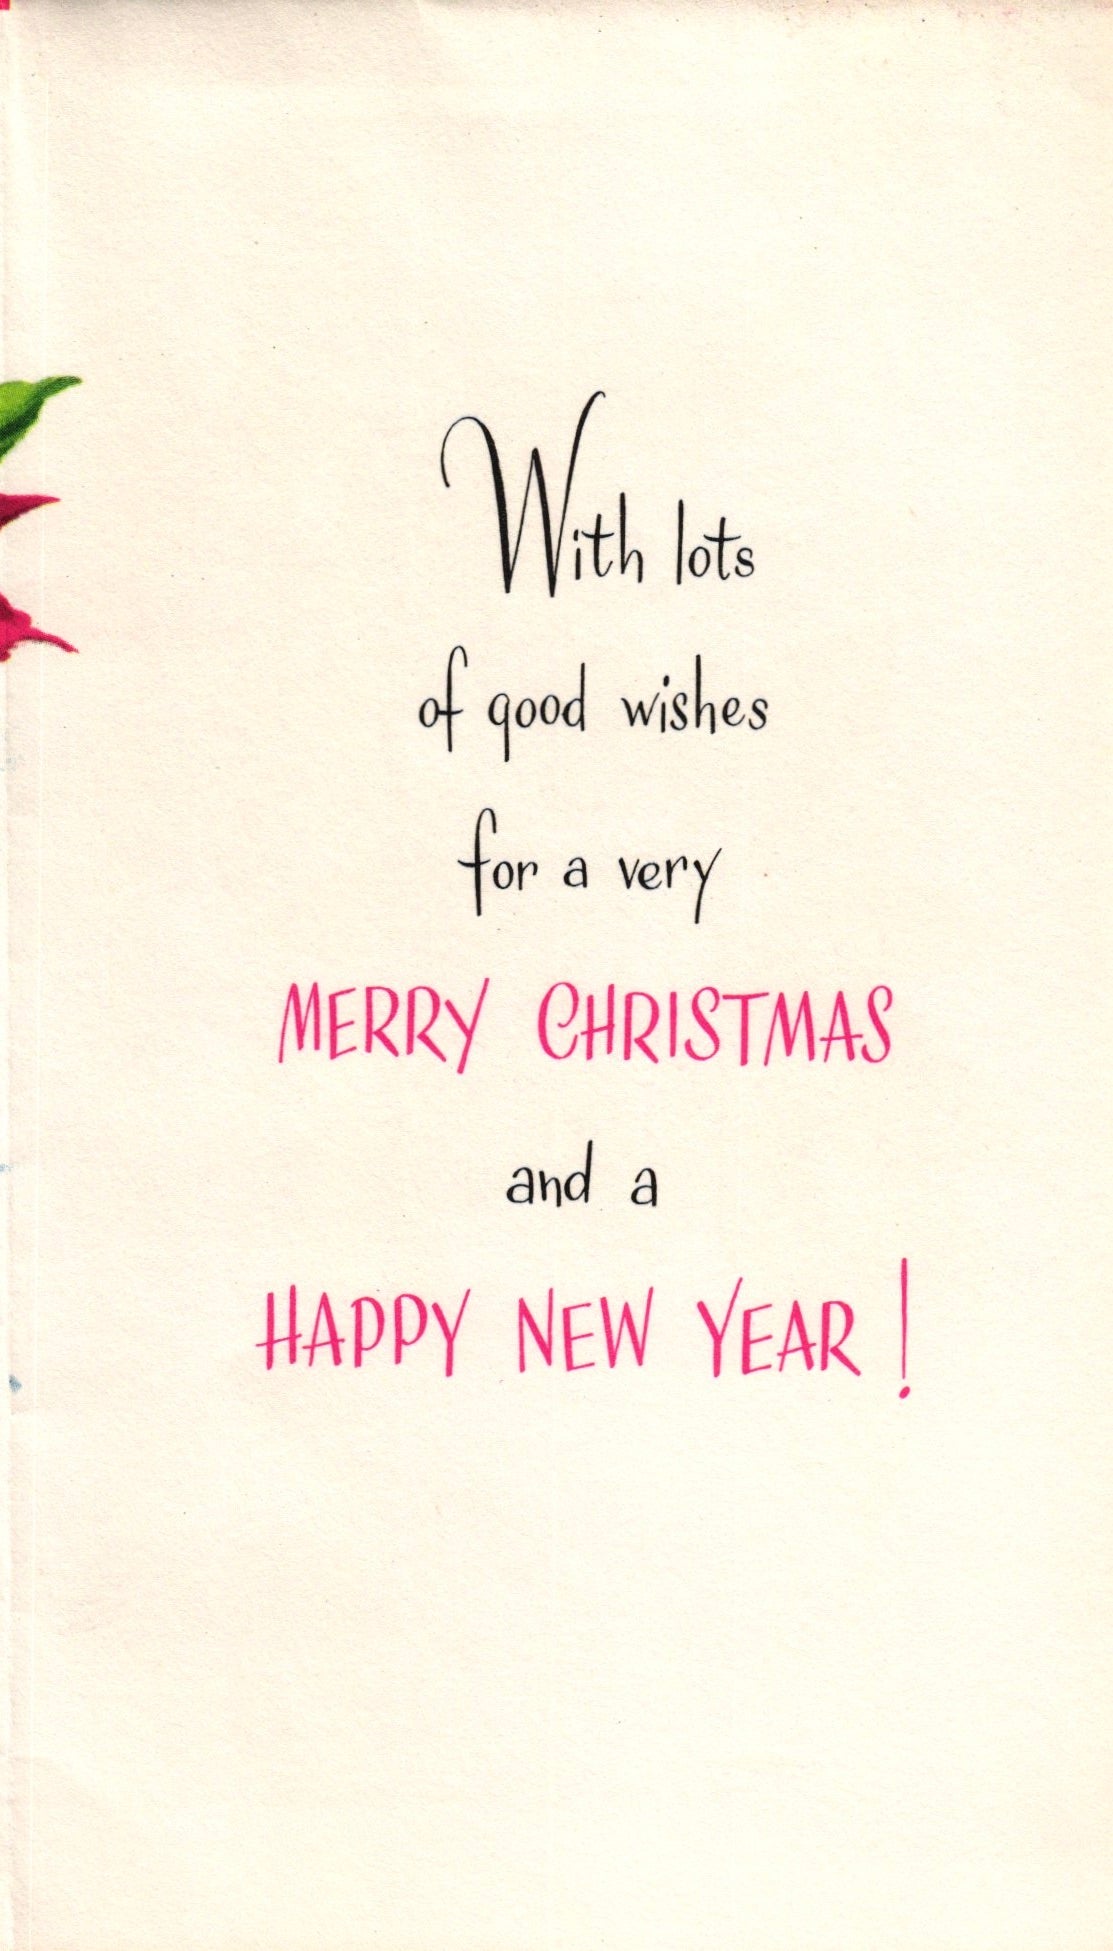 With lots
of good wishes
for a very
MERRY CHRISTMAS
and a
HAPPY NEW YEAR!